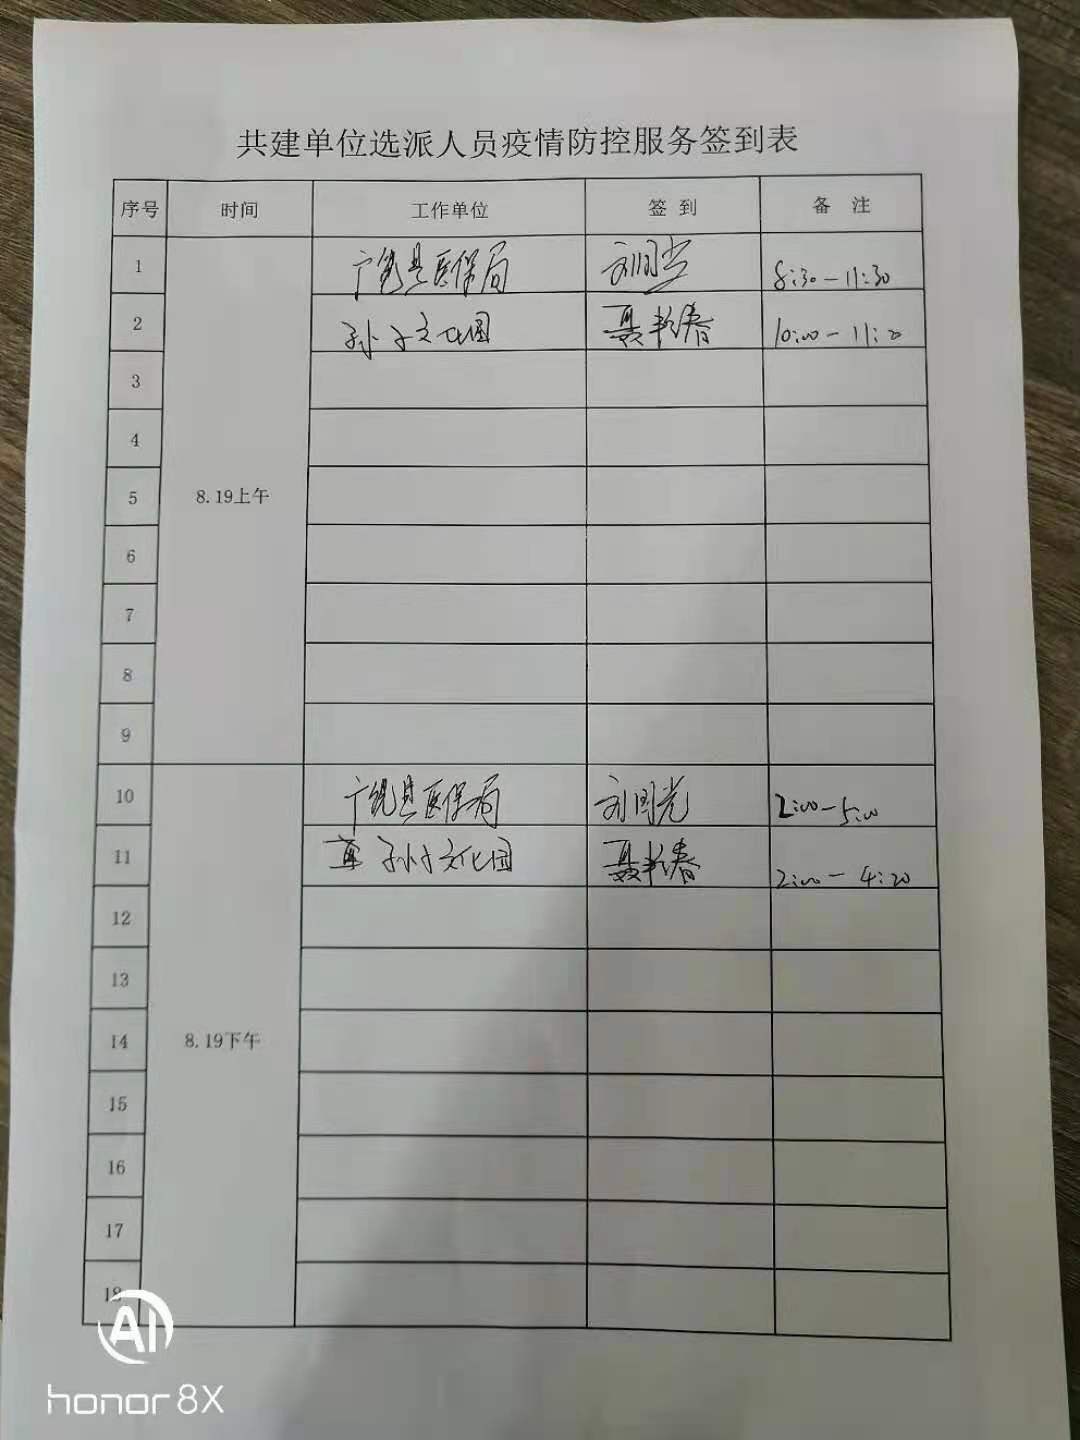 共建单位选派人员疫情防控服务签到表
序号 时间 工作单位 签到 备注
1 广饶县医保局 刘国光 8:30-11:30
2 孙子文化园 聂 春 10:00-11:20
3
4
5 8.19上午
6
7
8
9
10 广饶县医保局 刘国光 2:00-5:00
11 孙子文化园 聂 春 2:00-4:20
12
13
14 8.19下午
15
16
17
18
AI
honor 8X